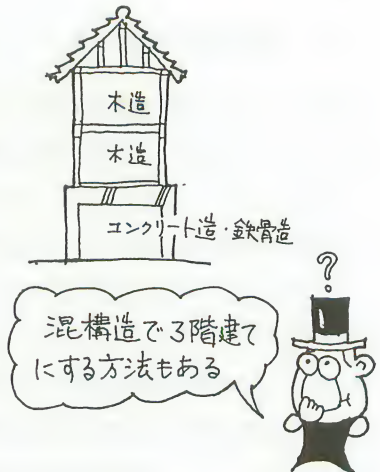 木造
木造
コンクリート造・鉄骨造
?
混構造で3階建て
にする方法もある